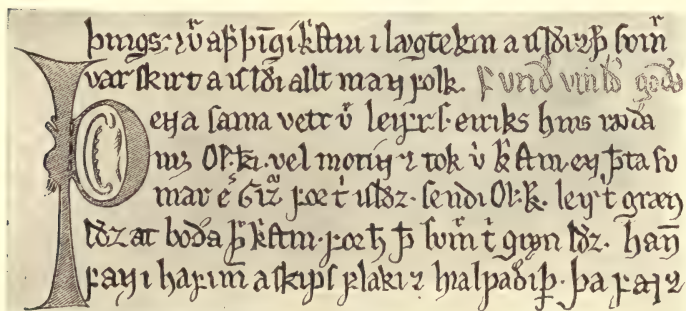 þings ⁊ v͛ a þ̄ þīgi k͛stni ı lǫgtekın a ıſlꝺı ⁊ þ̄ ſum͛
var ſkırt a ıſlꝺı allt maɴ ꝼolk. ꝼunꝺıꝺ vınlꝺ goꝺa
Þeɴa ſama vetr v͛ leıꝼr .ſ. eırıks hınſ rauꝺa
m; Ol. kı. vel metıɴ ⁊ tok v͛ k͛ſtnı. eɴ þ̄ta ſu
mar e͛ Gız᷑ ꝼoꝛ t͛ ıſlꝺz. ſenꝺı Ol. k. leıꝼ t͛ græn
lꝺz at boꝺa þ͛ k͛ſtnı. ꝼoꝛ h̄ þ̄ ſum͛ t͛ grǫnlꝺz. haɴ
ꝼaɴ ı haꝼı m̄ a ſkıpſ ꝼlakı ⁊ hıalpaꝺı þ̄. þa ꝼaɴ ⁊